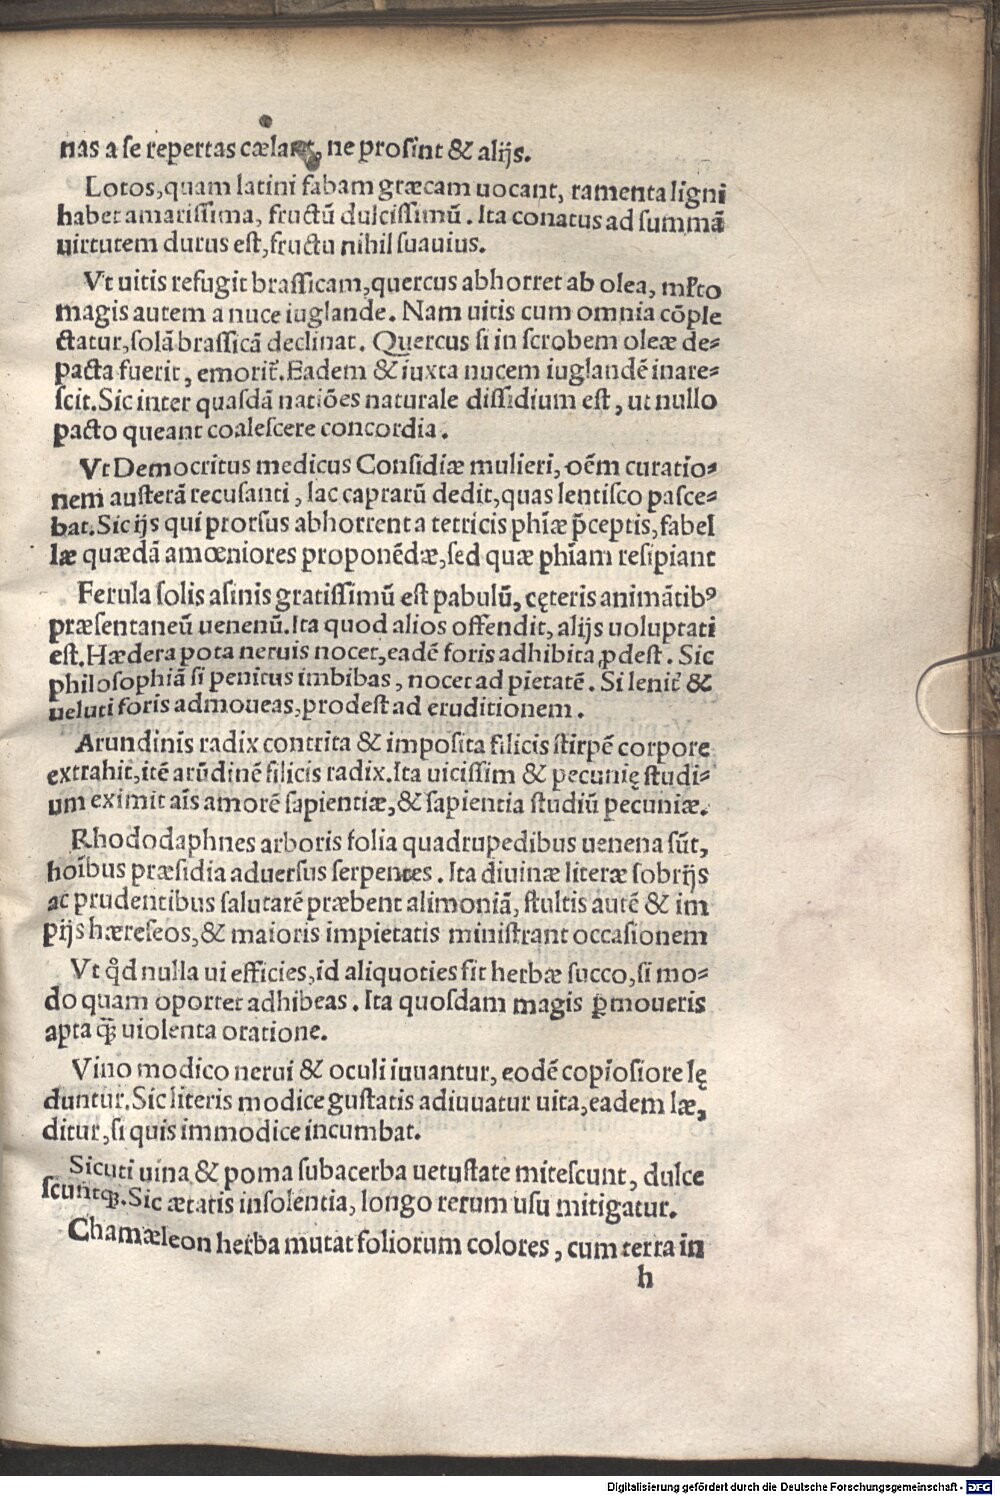 nas a se repertas cælant, ne prosint & alijs.
Lotos, quam latini fabam græcam uocant, ramenta ligni
habet amarissima, fructũ dulcissimũ. Ita conatus ad summã
uirtutem durus est, fructu nihil suauius.
Vt uitis refugit brassicam, quercus abhorret ab olea, ml̃to
magis autem a nuce iuglande. Nam uitis cum omnia cõple
ctatur, solã brassicã declinat. Quercus si in scrobem oleæ de⸗
pacta fuerit, emorit᷑. Eadem & iuxta nucem iuglandẽ inare⸗
scit. Sic inter quasdã natiões naturale dissidium est, ut nullo
pacto queant coalescere concordia.
Vt Democritus medicus Considiæ mulieri, oẽm curatio⸗
nem austerã recusanti, lac caprarũ dedit, quas lentisco pasce⸗
bat. Sic ijs qui prorsus abhorrent a tetricis phĩæ p̃ceptis, fabel
læ quædã amœniores proponẽdæ, sed quæ phĩam resipiant
Ferula solis asinis gratissimũ est pabulũ, cęteris animãtibꝰ
præsentaneũ uenenũ. Ita quod alios offendit, alijs uoluptati
est. Hædera pota neruis nocet, eadẽ foris adhibita ꝓdest. Sic
philosophiã si penitus imbibas, nocet ad pietatẽ. Si lenit᷑ &
ueluti foris admoueas, prodest ad eruditionem.
Arundinis radix contrita & imposita filicis stirpẽ corpore
extrahit, itẽ arũdinẽ filicis radix. Ita uicissim & pecunię studi⸗
um eximit aĩs amorẽ sapientiæ, & sapientia studiũ pecuniæ.
Rhododaphnes arboris folia quadrupedibus uenena sũt,
hoĩbus præsidia aduersus serpentes. Ita diuinæ literæ sobrijs
ac prudentibus salutarẽ præbent alimoniã, stultis autẽ & im
pijs hæreseos, & maioris impietatis ministrant occasionem
Vt qd̃ nulla ui efficies, id aliquoties fit herbæ succo, si mo⸗
do quam oportet adhibeas. Ita quosdam magis ꝑmoueris
apta q̃ꝫ uiolenta oratione.
Vino modico nerui & oculi iuuantur, eodẽ copiosiore lę
duntur. Sic literis modice gustatis adiuuatur uita, eadem læ,
ditur, si quis immodice incumbat.
Sicuti uina & poma subacerba uetustate mitescunt, dulce
scuntqꝫ. Sic ætatis insolentia, longo rerum usu mitigatur.
Chamæleon herba mutat foliorum colores, cum terra in
h
Digitalisierung gefördert durch die Deutsche Forschungsgemeinschaft - DFG